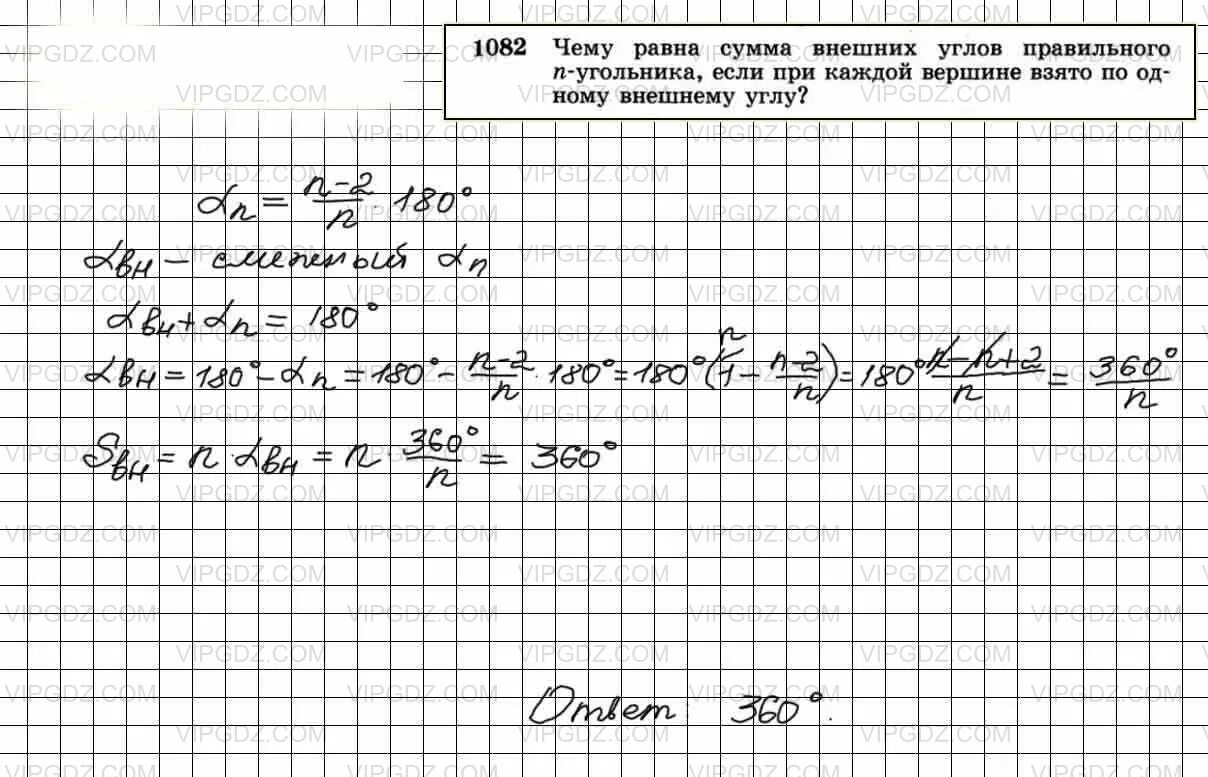 1082 Чему равна сумма внешних углов правильного
n-угольника, если при каждой вершине взято по од-
ному внешнему углу?
αn = n−2/n · 180°
αвн − смежный αn
αвн + αn = 180°
αвн = 180° − αn = 180° − n−2/n · 180° = 180°(1 − n−2/n) = 180° n−n+2/n = 360°/n
Sвн = n · αвн = n · 360°/n = 360°
Ответ: 360°.
VIPGDZ.COM